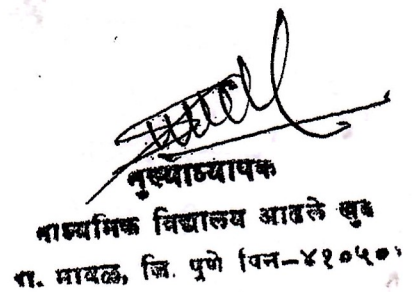 मुख्याध्यापक
माध्यमिक विद्यालय आढले खुर्द
ता. मावळ, जि. पुणे पिन-४१०५०